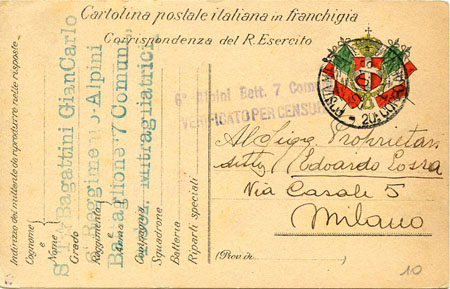 Cartolina postale italiana in franchigia
Corrispondenza del R. Esercito
6° Alpini Batt. 7 Comuni
VERIFICATO PER CENSURA
Al Sigr. Proprietar
ditta Edoardo
Via Casale 5
Milano
(Prov. di
10
Indirizzo del mittente da riprodurre nelle risposte
Cognome
e
Nome
Grado
Reggimento
Arma
Compagnia
Squadrone
Batteria
Riparti speciali
Bagattini GianCarlo
6° Reggimento Alpini
Battaglione 7 Comuni
Mitragliatrici